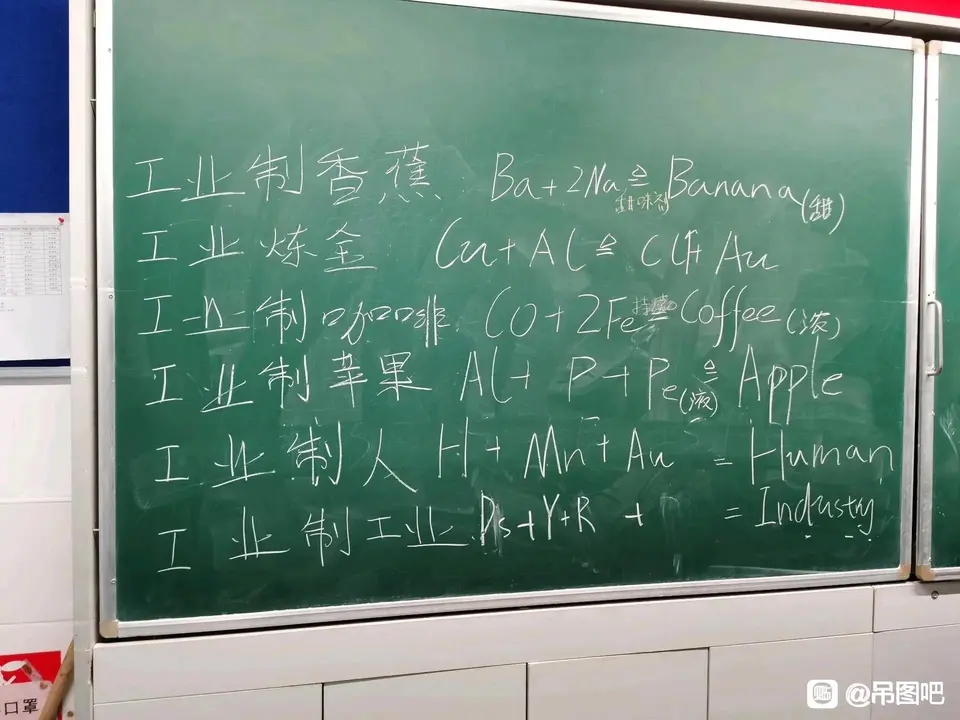 工业制香蕉 Ba+2Na ≙ Banana(甜)
甜味剂
工业炼金 Cu+Al ≙ Cl+Au
工业制咖啡 CO+2Fe 持续 Coffee(浓)
工业制苹果 Al+P+Pe(液) ≙ Apple
工业制人 H+Mn+Au = Human
工业制工业 Ds+Y+R + = Industry
口罩
@吊图吧